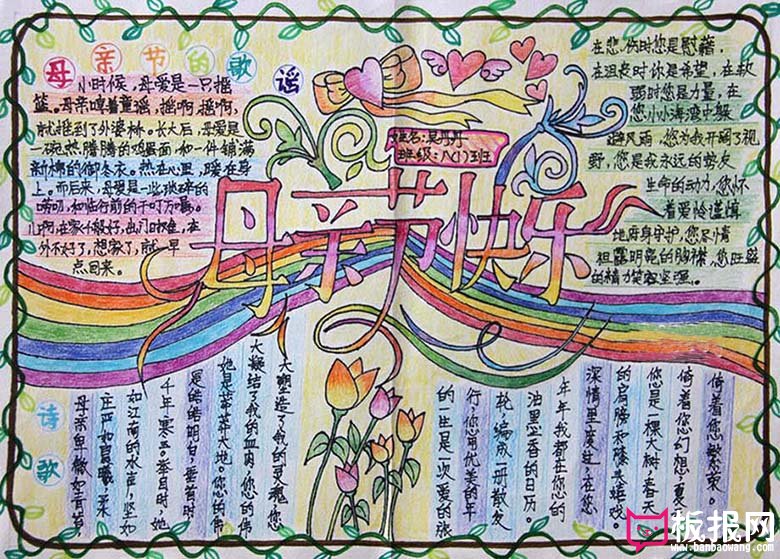 母亲节的歌谣
小时候，母爱是一只摇
篮。母亲哼着童谣，摇啊，摇啊，
就摇到了外婆桥。长大后，母爱是
一碗热腾腾的鸡蛋面，和一件铺满
新棉的御冬衣。热在心里，暖在身
上。而后来，母爱是一些琐碎的
唠叨，和临行前的千叮万嘱。
儿啊，在家千般好，出门时难，在
外不好了，想家了，就一早
点回来。
姓名：吴丹丹
班级：八(1)班
母亲节快乐
在悲伤时您是慰藉，
在沮丧时你是希望，在软
弱时您是力量，在
您小小海湾中躲
避风雨，您为我开阔了视
野，您是我永远的挚友
生命的动力，您怀
着爱怜谨慎
地俯身守护，您尽情
袒露明亮的胸襟，您旺盛
的精力笑容坚强。
诗歌
母亲卑微如青苔，
庄严如晨曦，柔
如江南的水声，坚如
千年寒玉。举目时，她
是皓皓明月，垂首时
她是莽莽大地。您的伟
大凝结了我的血肉，您的伟
大塑造了我的灵魂，您
的一生是一次爱的
行，您用优美的年
轮，编成一册散
油墨香的日历。
年年我都在您的
深情里度过，在您
的肩膀和膝头嬉戏。
您是一棵大树，春天
倚着您幻想，夏天
倚着您繁荣。
板报网
www.banbaowang.com